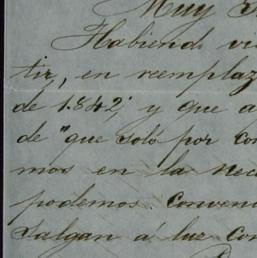 Muy
Habiendo vi
tir, en reemplaz
de 1.842; y que a
de "que soló por con
mos en la nec
podemos convenc
salgan á luz con